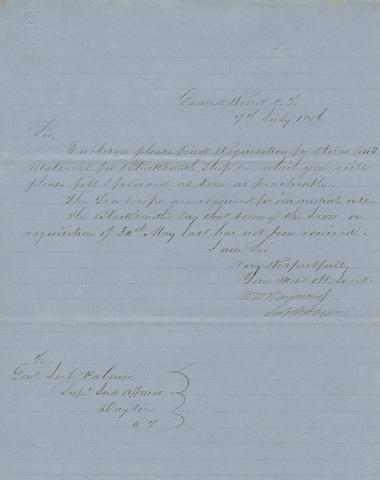 Grand Rond O.T.
7d July 1856.
Sir,
Enclosed please find Requisition for Stores and
Material for Blacksmith Shop &c which you will
please fill & forward as soon as practicable.
The Tea & rope are required for immediate use.
The Blacksmiths say that some of the Iron on
requisition of 30th May last has not been received.
I am Sir
Very Respectfully
Your Most Obt Servt.
W.W. Raymond
Sub Ind Agt
To
Genl. Joel Palmer
Supt. Ind Affairs
Dayton
O.T.